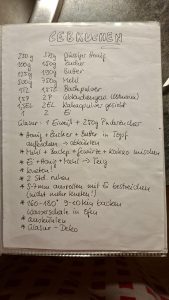 LEBKUCHEN
250g 500g flüssiger Honig
100g 150g Zucker
125g 190g Butter
500g 750g Mehl
1TL 1,5TL Backpulver
1EL 2EL Kakaopulver gesiebt
1 2 Ei
Glasur - 1 Eiweiß + 250g Puderzucker
* Honig + Zucker + Butter in Topf
aufkochen → abkühlen
* Mehl + Backp + Gewürz + Kakao mischen
* Ei + Honig + Mehl → Teig
* kneten!
* 2 Std. ruhen
* 5-7mm ausrollen mit Ei bestreichen
(nicht mehr kneten!)
* 160-180° 9-10Min backen
Wasserschale in Ofen
* auskühlen
* Glasur - Deko